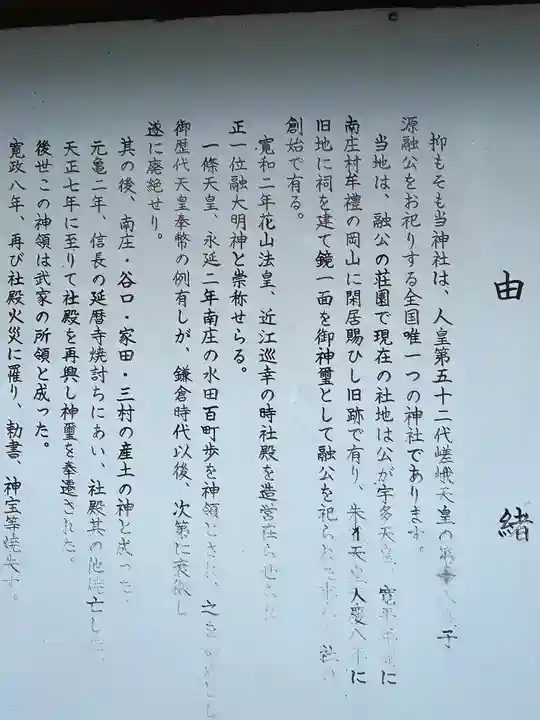 由緒
抑もそも当神社は、人皇第五十二代嵯峨天皇の 子
源融公をお祀りする全国唯一つの神社であります。
当地は、融公の荘園で現在の社地は公が宇多天皇、寛平 に
南庄村牟禮の岡山に閑居賜ひし旧跡で有り、朱 天皇 慶八年に
旧地に祠を建て鏡一面を御神璽として融公を祀られた
創始で有る。
寛和二年花山法皇、近江巡幸の時社殿を造営在らせられ
正一位融大明神と崇称せらる。
一條天皇、永延二年南庄の水田百町歩を神領とされ、之を
御歴代天皇奉幣の例有しが、鎌倉時代以後、次第に衰微し
遂に廃絶せり。
其の後、南庄・谷口・家田・三村の産土の神と成った
元亀二年、信長の延暦寺焼討ちにあい、社殿其の他焼亡し
天正七年に至りて社殿を再興し神璽を奉遷された。
後世この神領は武家の所領と成った。
寛政八年、再び社殿火災に罹り、勅書、神宝等焼失す。